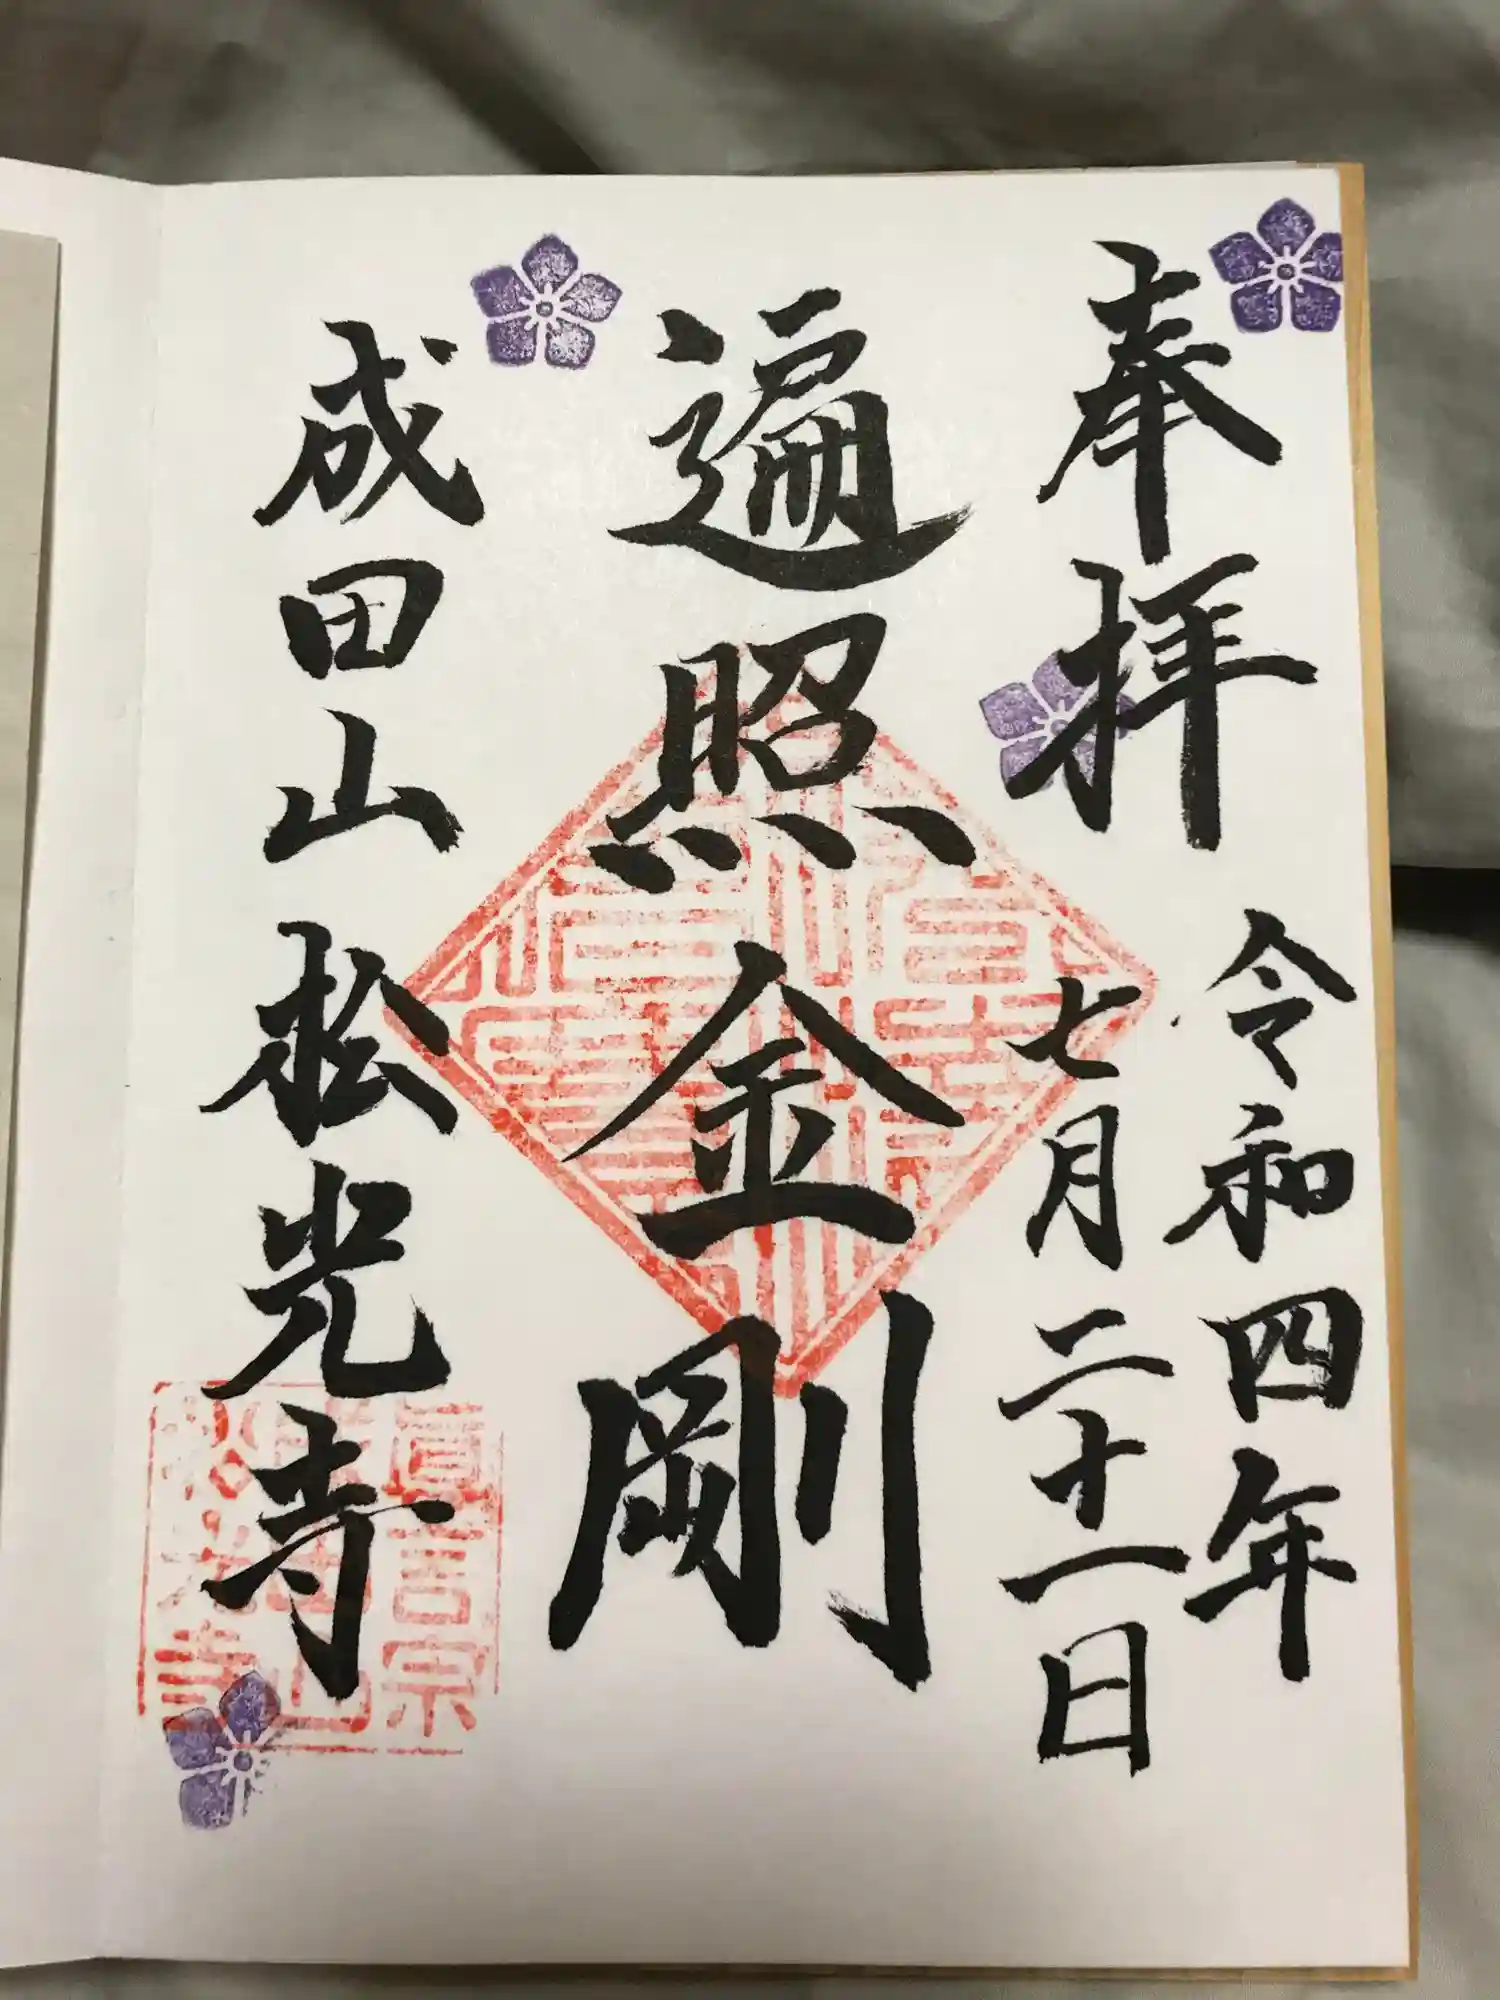 奉拝
令和四年
七月二十一日
遍照金剛
成田山松光寺
真言宗